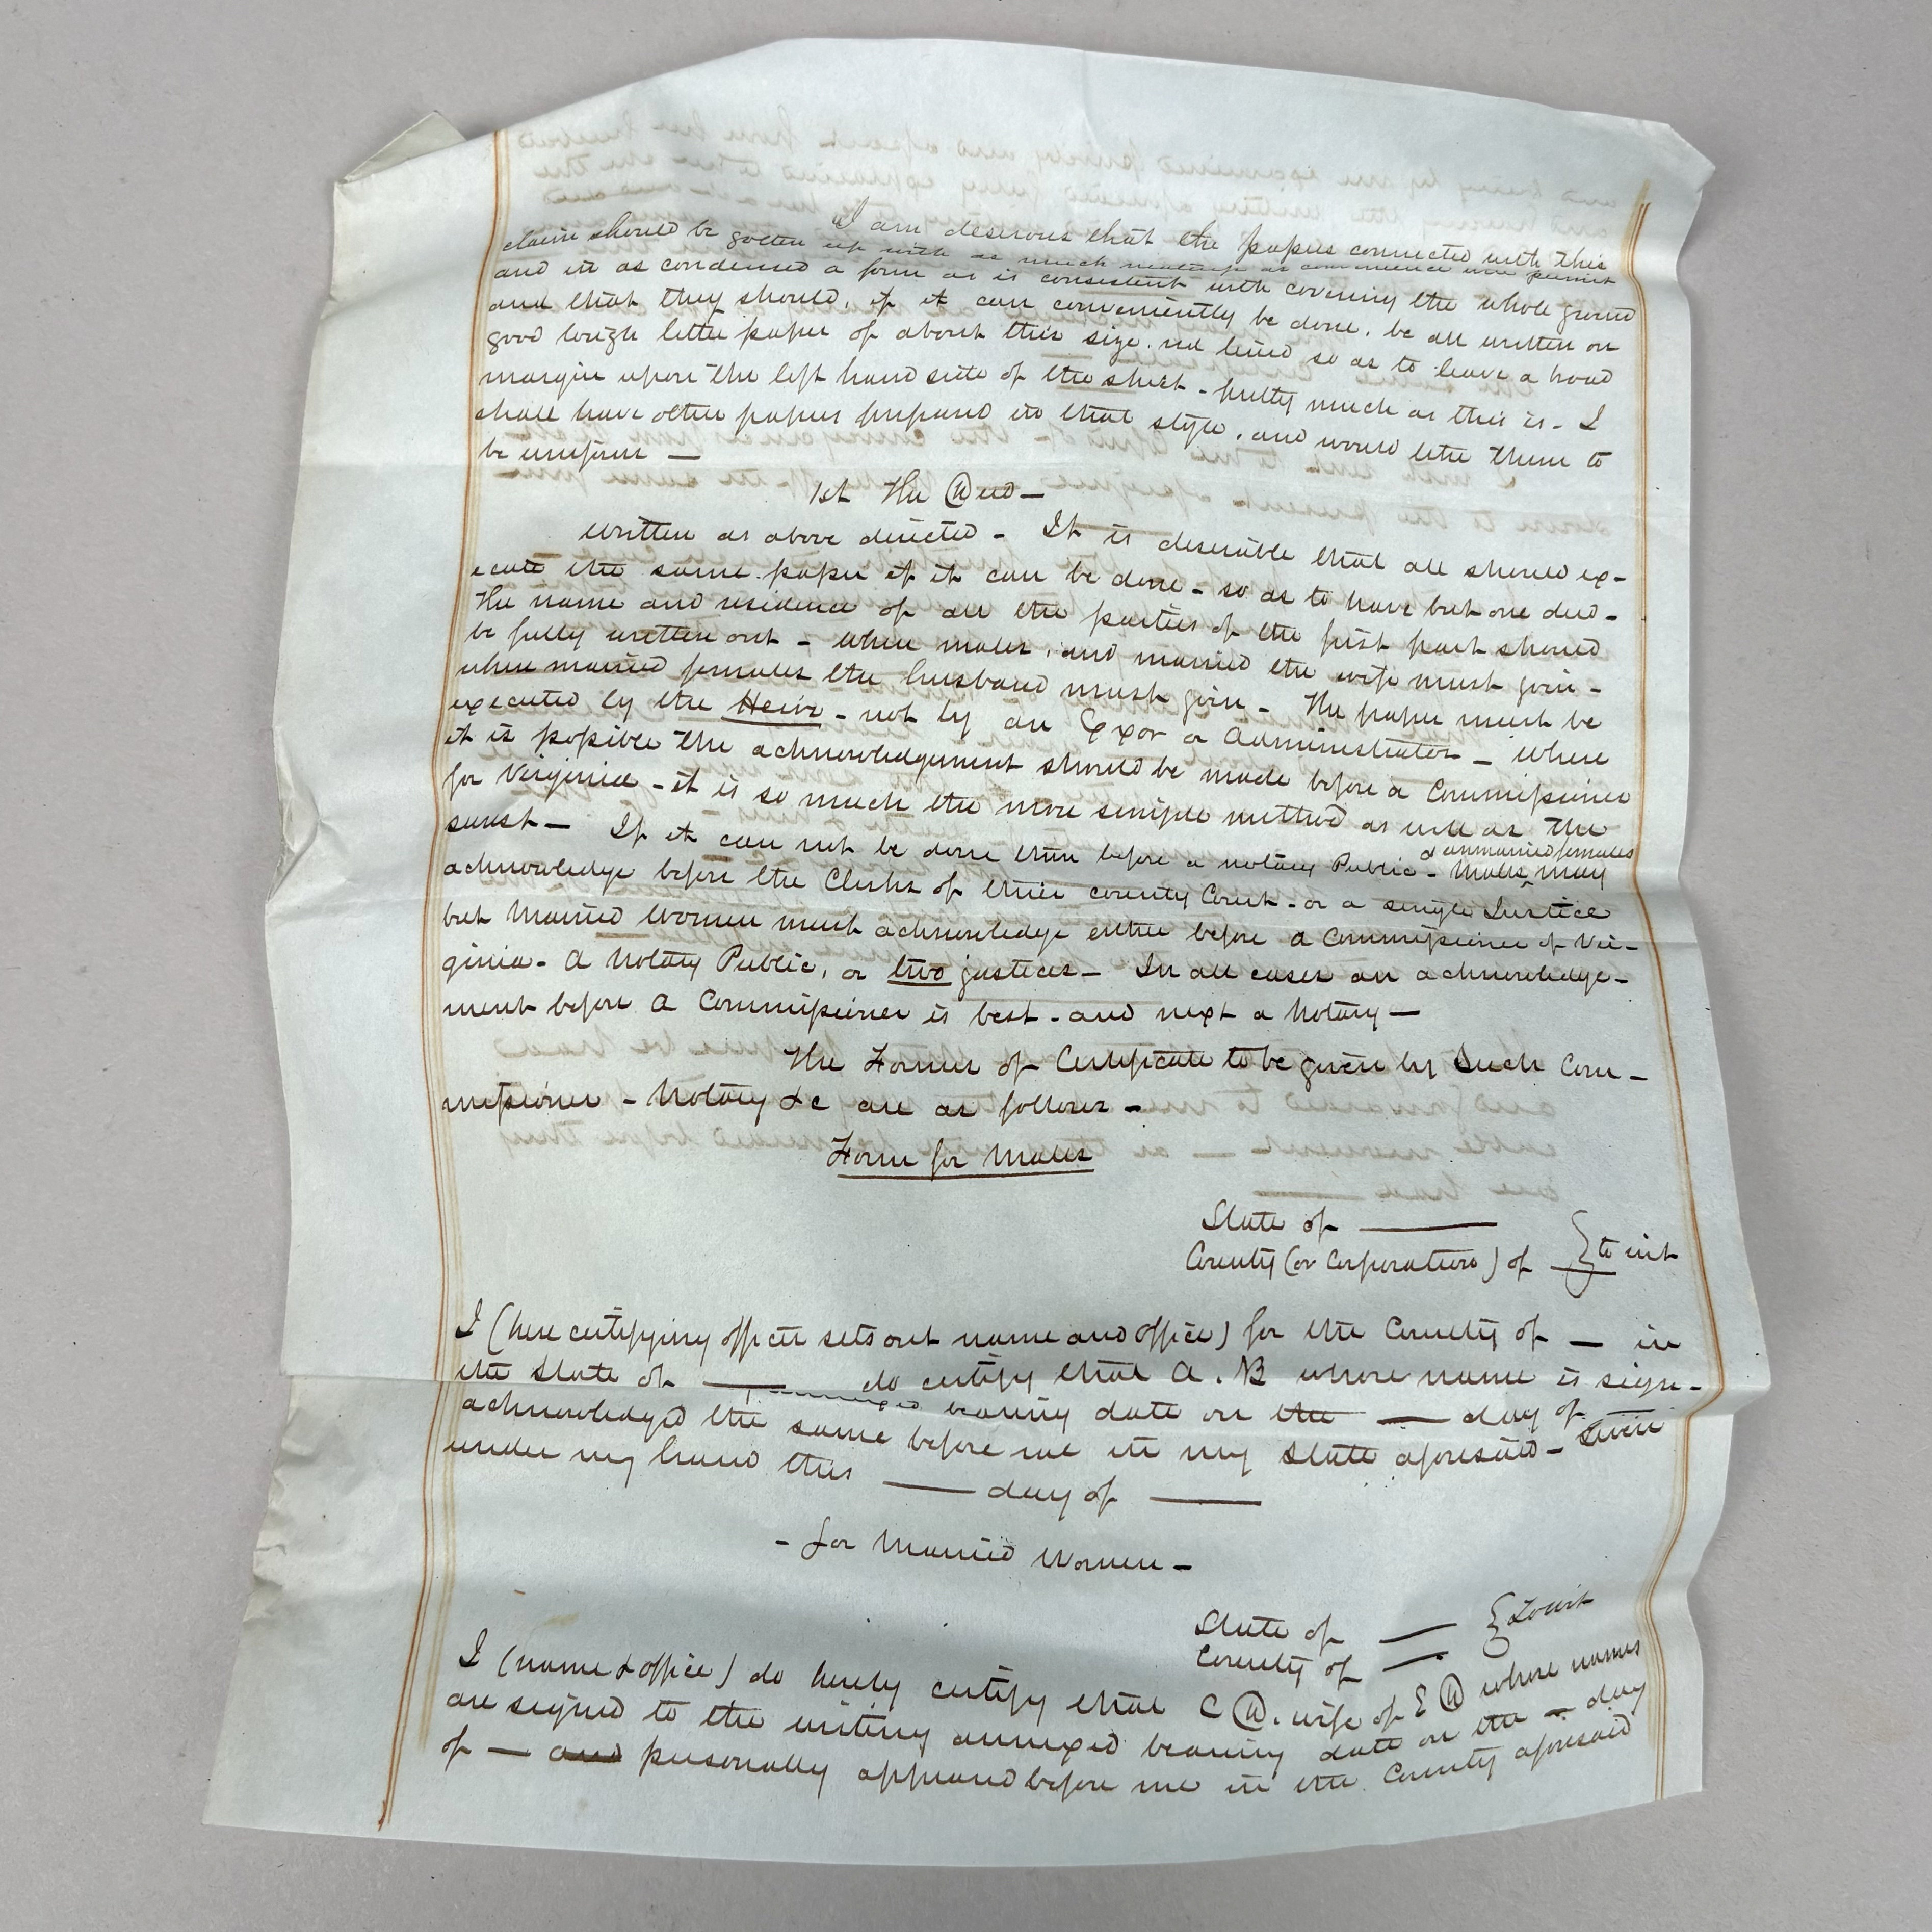 I am desirous that the papers connected with this
claim should be gotten up with as much neatness as convenience will permit
and in as condensed a form as is consistent with covering the whole ground
and that they should, if it can conveniently be done, be all written on
good rough letter paper of about this size, not lined so as to leave a broad
margin upon the left hand side of the sheet - pretty much as this is - I
shall have other papers prepared in that style, and would like them to
be uniform -
1st The Deed -
written as above directed - It is desirable that all should ex-
ecute the same paper if it can be done - so as to have but one deed -
The name and residence of all the parties of the first part should
be fully written out - where males, and married the wife must join -
where married females the husband must join - The paper must be
executed by the Heirs - not by an Exor or Administrator - where
it is possible the acknowledgement should be made before a Commissioner
for Virginia - it is so much the more simple method as well as the
surest - If it can not be done then before a notary Public - Males & unmarried females may
acknowledge before the Clerks of their county Court - or a single Justice
but Married women must acknowledge either before a Commissioner of Vir-
ginia - A Notary Public, or two justices - In all cases an acknowledge-
ment before a Commissioner is best - and next a Notary -
The Forms of Certificate to be given by Such Com-
missioner - Notary &c are as follows -
Form for Males
State of ——
County (or Corporation) of —— } to wit
I (here certifying officer sets out name and office) for the County of — in
the State of —— do certify that A. B whose name is sign-
bearing date on the — day of —
acknowledged the same before me in my State aforesaid - Given
under my hand this —— day of ——
- for Married Women -
State of —
County of — } Towit
I (name & office) do hereby certify that C D. wife of E D whose names
are signed to the writing annexed bearing date on the — day
of — and personally appeared before me in the County aforesaid